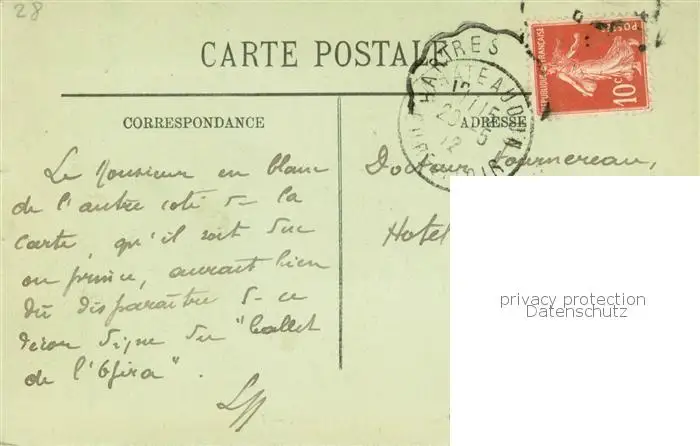 28
CARTE POSTALE
CHARTRES
CHATEAUDUN
RÉPUBLIQUE FRANÇAISE
POSTES
10c
CORRESPONDANCE
ADRESSE
Le Monsieur en blanc
de l'autre coté de la
Carte, qu'il soit duc
ou prince, aurait bien
dû disparaître de ce
décor digne du "ballet
de l'Opéra".
Docteur Fournereau,
Hotel
privacy protection
Datenschutz